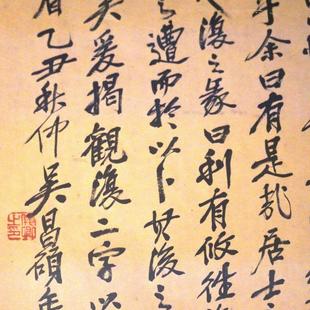 于余曰有是哉居士
復之彖曰利有攸往
遭而於以卜其復之
爰揭觀復二字以
乙丑秋仲吳昌碩年